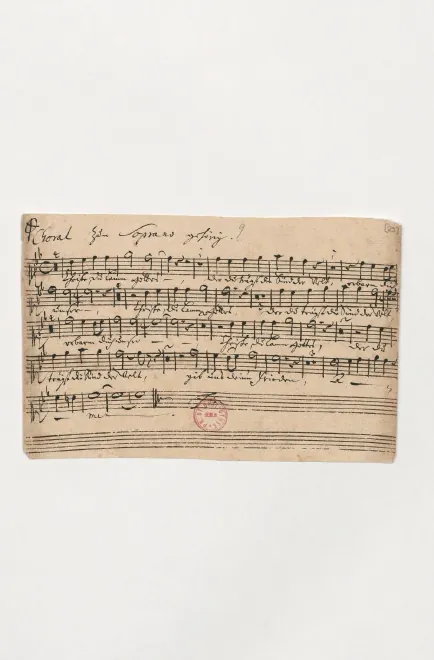 Choral zum Soprano gehörig.
Christe, du Lamm Gottes, der du trägst die Sünd der Welt, erbarm dich
unser, Christe, du Lamm Gottes, der du trägst die Sünd der Welt
erbarm dich unser, Christe, du Lamm Gottes, der du
trägst die Sünd der Welt, gib uns deinen Frieden, A
me